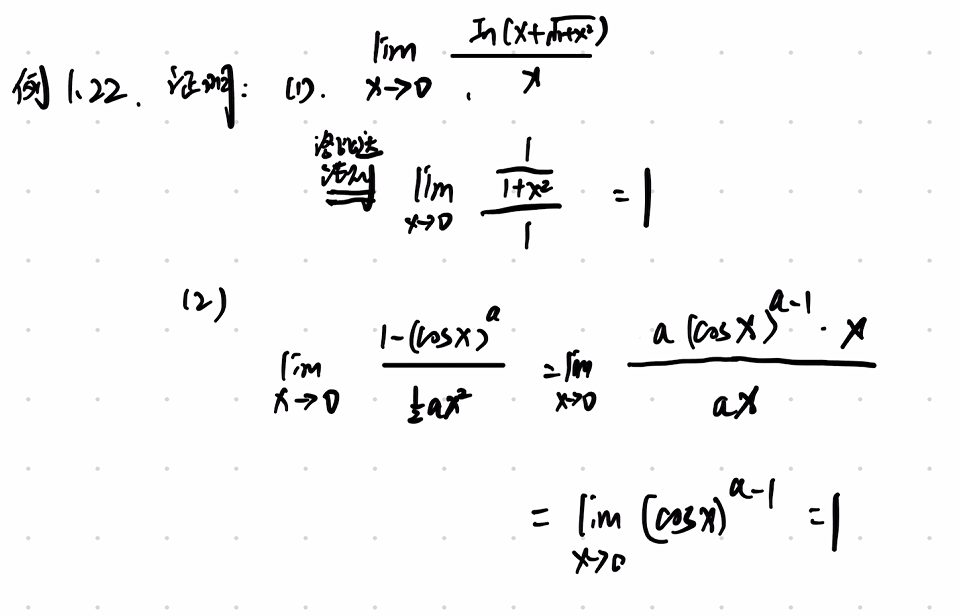 例1.22. 证明: (1). lim x→0 ln(x+√(1+x²)) / x
洛必达法则 lim x→0 (1/(1+x²)) / 1 = 1
(2)
lim x→0 (1-(cosx)^a) / (½ax²) = lim x→0 (a(cosx)^(a-1)·x) / (ax)
= lim x→0 (cosx)^(a-1) = 1